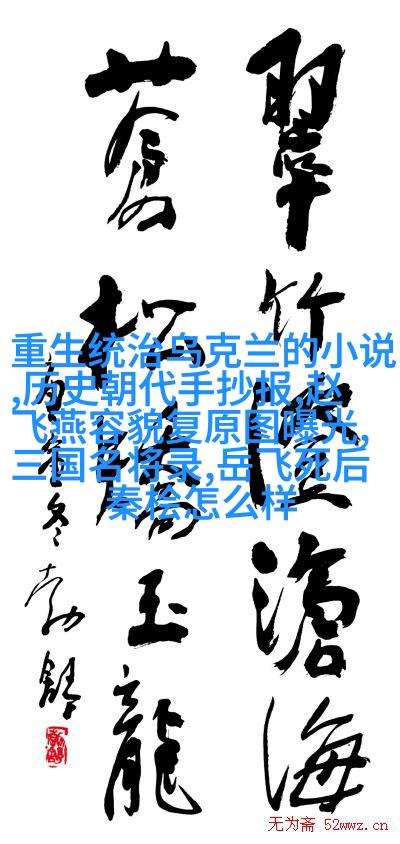 翠竹滄海
蒼松玉龍
冬勃舒
重生统治乌克兰的小说
,历史朝代手抄报,赵
飞燕容貌复原图曝光,
三国名将录,岳飞死后
秦桧怎么样
无为斋 52wwz.cn